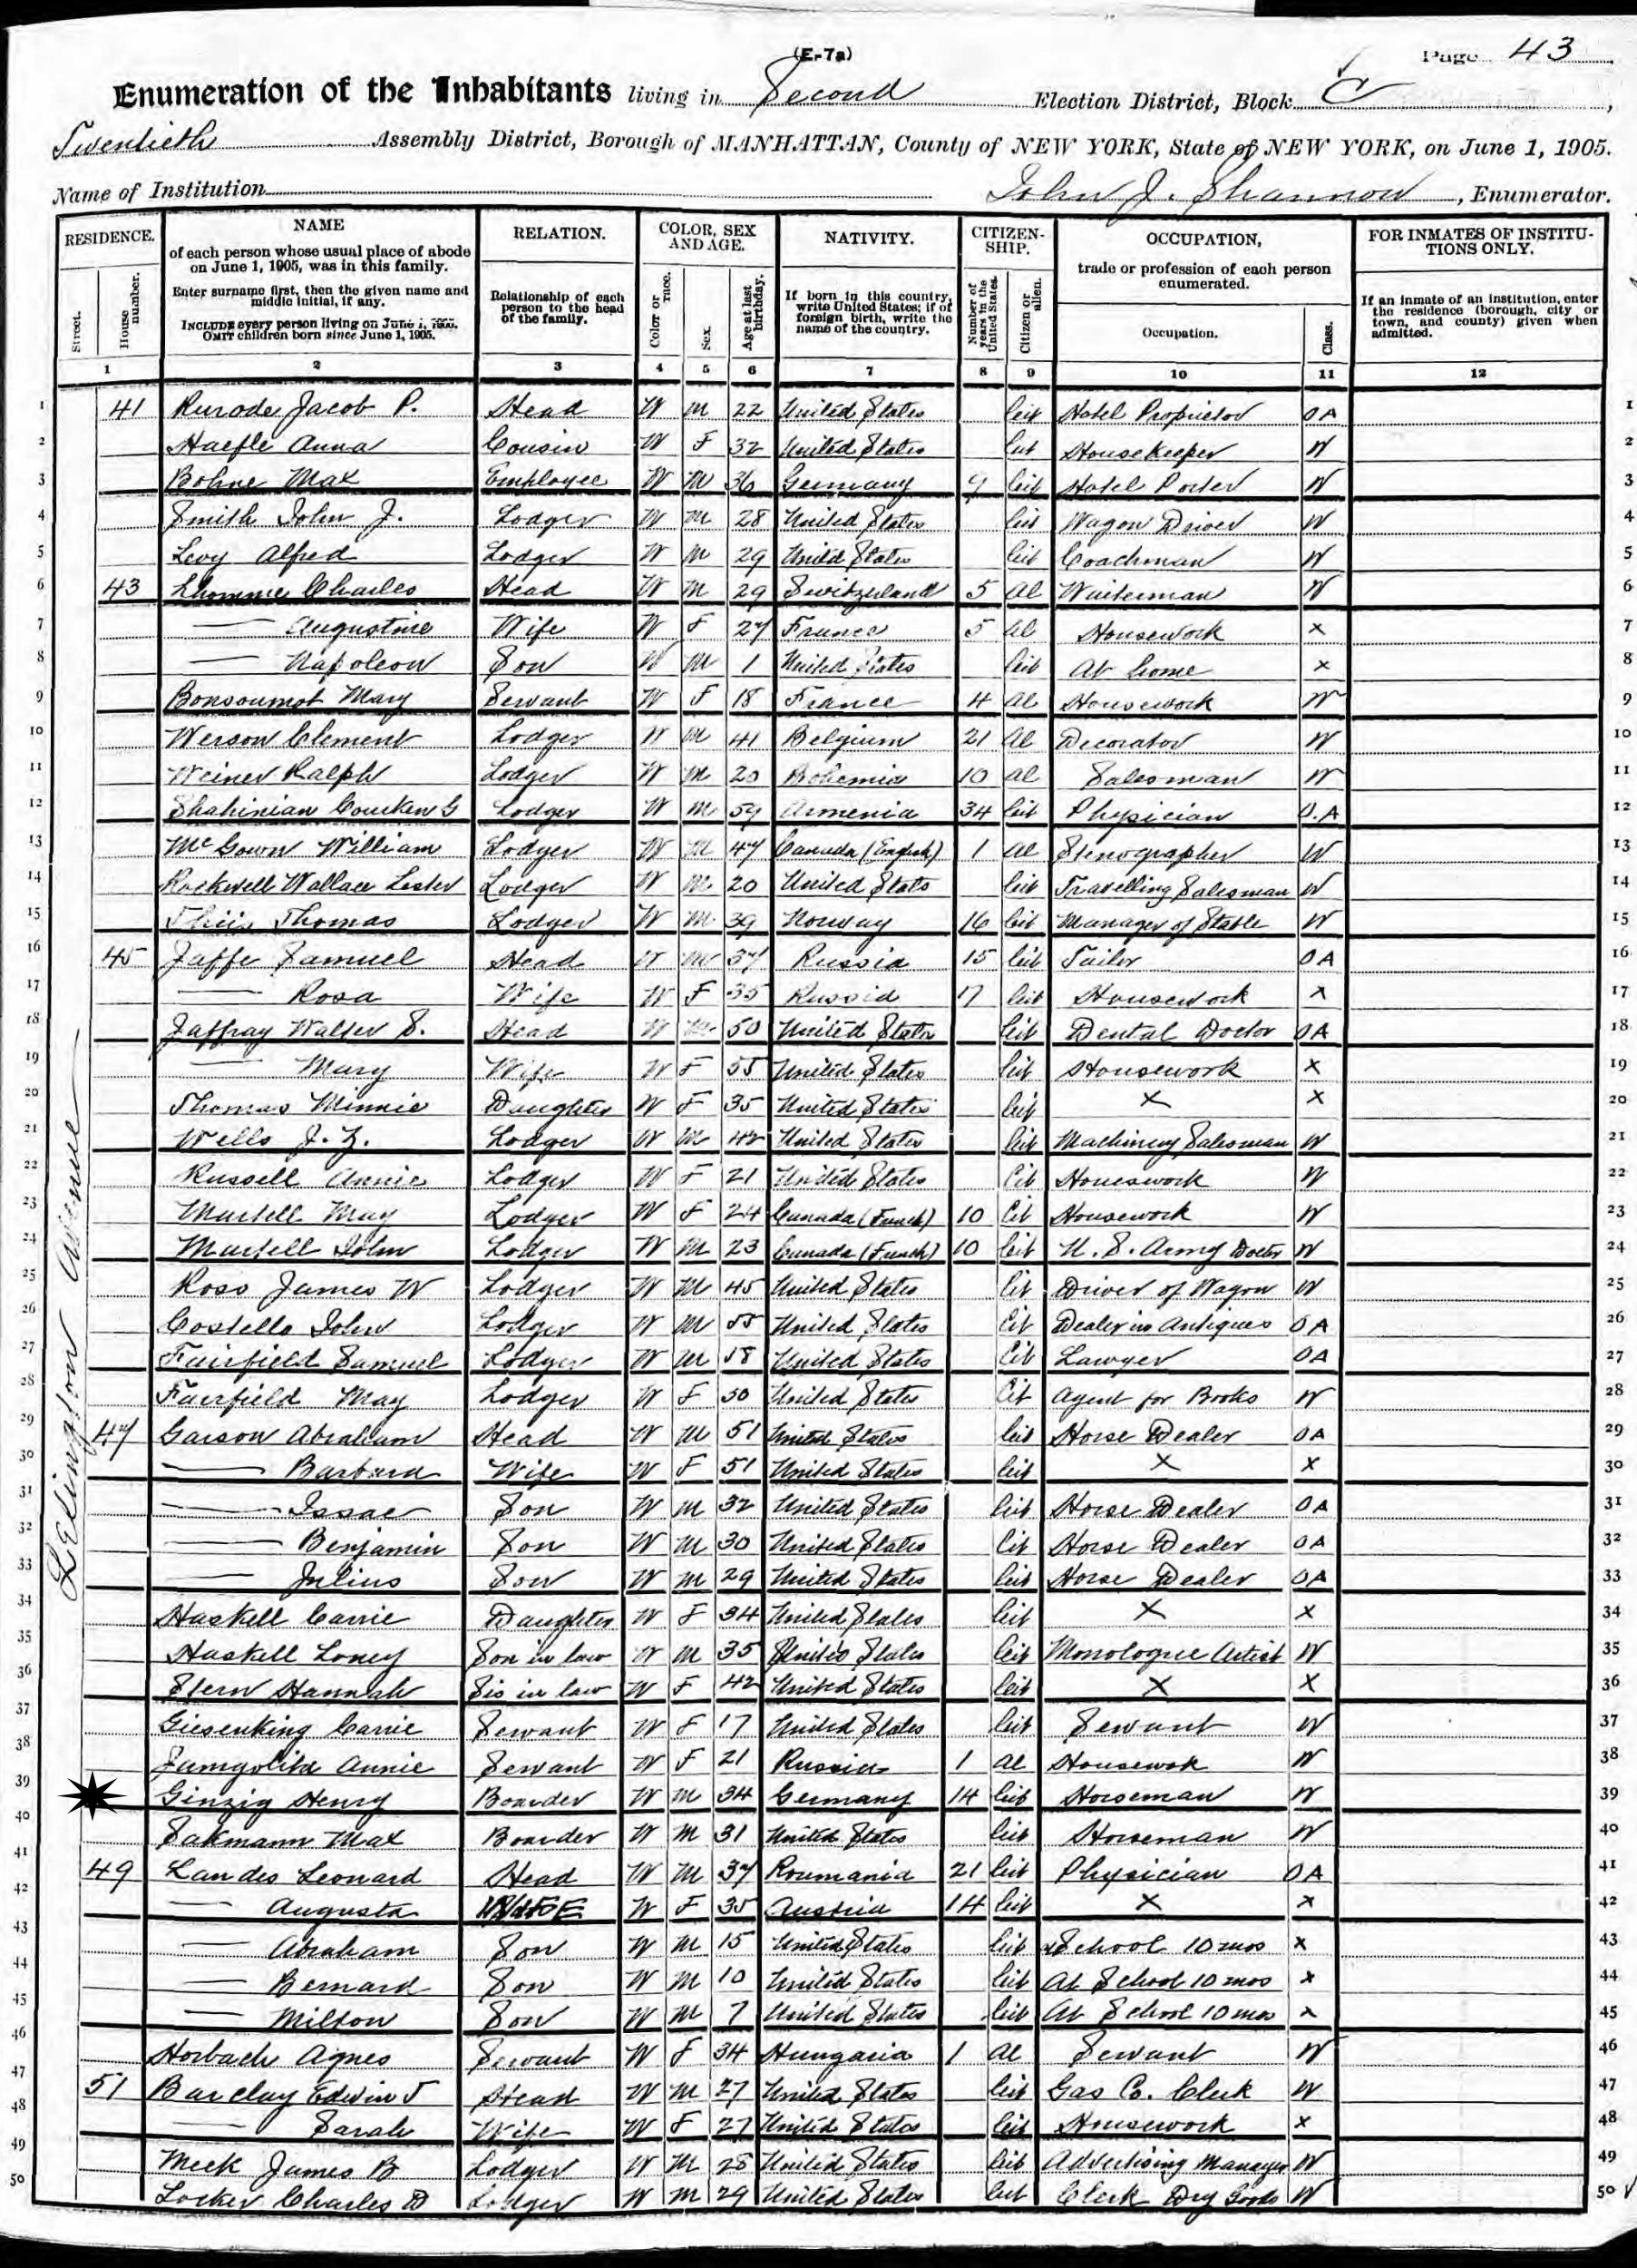 (E-7a)
Page 43
Enumeration of the Inhabitants living in Second Election District, Block C,
Twentieth Assembly District, Borough of MANHATTAN, County of NEW YORK, State of NEW YORK, on June 1, 1905.
Name of Institution John J. Shannon, Enumerator.
RESIDENCE. NAME RELATION. COLOR, SEX AND AGE. NATIVITY. CITIZEN-SHIP. OCCUPATION, FOR INMATES OF INSTITUTIONS ONLY.
Street. House number.
of each person whose usual place of abode on June 1, 1905, was in this family.
Enter surname first, then the given name and middle initial, if any.
INCLUDE every person living on June 1, 1905. OMIT children born since June 1, 1905.
Relationship of each person to the head of the family.
Color or race. Sex. Age at last birthday.
If born in this country, write United States; if of foreign birth, write the name of the country.
Number of years in the United States. Citizen or alien.
trade or profession of each person enumerated.
Occupation. Class.
If an inmate of an institution, enter the residence (borough, city or town, and county) given when admitted.
1 2 3 4 5 6 7 8 9 10 11 12
Lexington Avenue
1 41 Jacob P. Head W M 22 United States Cit Hotel Proprietor OA 1
2 Haefle Anna Cousin W F 32 United States Cit Housekeeper W 2
3 Bohne Max Employee W M 36 Germany 9 Cit Hotel Porter W 3
4 Smith John J. Lodger W M 28 United States Cit Wagon Driver W 4
5 Levy Alfred Lodger W M 29 United States Cit Coachman W 5
6 43 Lhomme Charles Head W M 29 Switzerland 5 Al Waiterman W 6
7 — Augustine Wife W F 27 France 5 Al Housework X 7
8 — Napoleon Son W M 1 United States Cit At home X 8
9 Mary Servant W F 18 France 4 Al Housework W 9
10 Werson Clement Lodger W M 41 Belgium 21 Al Decorator W 10
11 Weiner Ralph Lodger W M 20 Bohemia 10 Al Salesman W 11
12 Shahinian Gourken G Lodger W M 59 Armenia 34 Cit Physician O.A 12
13 McGown William Lodger W M 47 Canada (English) 1 Al Stenographer W 13
14 Rockwell Wallace Lester Lodger W M 20 United States Cit Travelling Salesman W 14
15 Thomas Lodger W M 39 Norway 16 Cit Manager of Stable W 15
16 45 Jaffe Samuel Head W M 37 Russia 15 Cit Tailor OA 16
17 — Rosa Wife W F 35 Russia 17 Cit Housework X 17
18 Jaffray Walter S. Head W M 50 United States Cit Dental Doctor OA 18
19 — Mary Wife W F 55 United States Cit Housework X 19
20 Thomas Minnie Daughter W F 35 United States Cit X X 20
21 Wells J. Z. Lodger W M 42 United States Cit Machinery Salesman W 21
22 Russell Annie Lodger W F 21 United States Cit Housework W 22
23 Martell May Lodger W F 24 Canada (French) 10 Cit Housework W 23
24 Martell John Lodger W M 23 Canada (French) 10 Cit U. S. Army Doctor W 24
25 Ross James W Lodger W M 45 United States Cit Driver of Wagon W 25
26 Costello John Lodger W M 55 United States Cit Dealer in Antiques OA 26
27 Fairfield Samuel Lodger W M 58 United States Cit Lawyer OA 27
28 Fairfield May Lodger W F 50 United States Cit Agent for Books W 28
29 47 Garson Abraham Head W M 51 United States Cit Horse Dealer OA 29
30 — Barbara Wife W F 51 United States Cit X X 30
31 — Issac Son W M 32 United States Cit Horse Dealer OA 31
32 — Benjamin Son W M 30 United States Cit Horse Dealer OA 32
33 — Julius Son W M 29 United States Cit Horse Dealer OA 33
34 Haskell Carrie Daughter W F 34 United States Cit X X 34
35 Haskell Loney Son in law W M 35 United States Cit Monologue Artist W 35
36 Stern Hannah Sis in law W F 42 United States Cit X X 36
37 Giesenking Carrie Servant W F 17 United States Cit Servant W 37
38 Annie Servant W F 21 Russia 1 Al Housewok W 38
39 Ginzig Henry Boarder W M 34 Germany 14 Cit Horseman W 39
40 Sakmann Max Boarder W M 31 United States Cit Horseman W 40
41 49 Landes Leonard Head W M 37 Roumania 21 Cit Physician OA 41
42 — Augusta WIFE W F 35 Austria 14 Cit X X 42
43 — Abraham Son W M 15 United States Cit School 10 mos X 43
44 — Bernard Son W M 10 United States Cit At School 10 mos X 44
45 — Milton Son W M 7 United States Cit At School 10 mos X 45
46 Horbach Agnes Servant W F 34 Hungaria 1 Al Servant W 46
47 51 Barclay Edwin T Head W M 27 United States Cit Gas Co. Clerk W 47
48 — Sarah Wife W F 27 United States Cit Housework X 48
49 Meek James B Lodger W M 28 United States Cit Advertising Manager W 49
50 Locker Charles D Lodger W M 29 United States Cit Clerk Dry Goods W 50